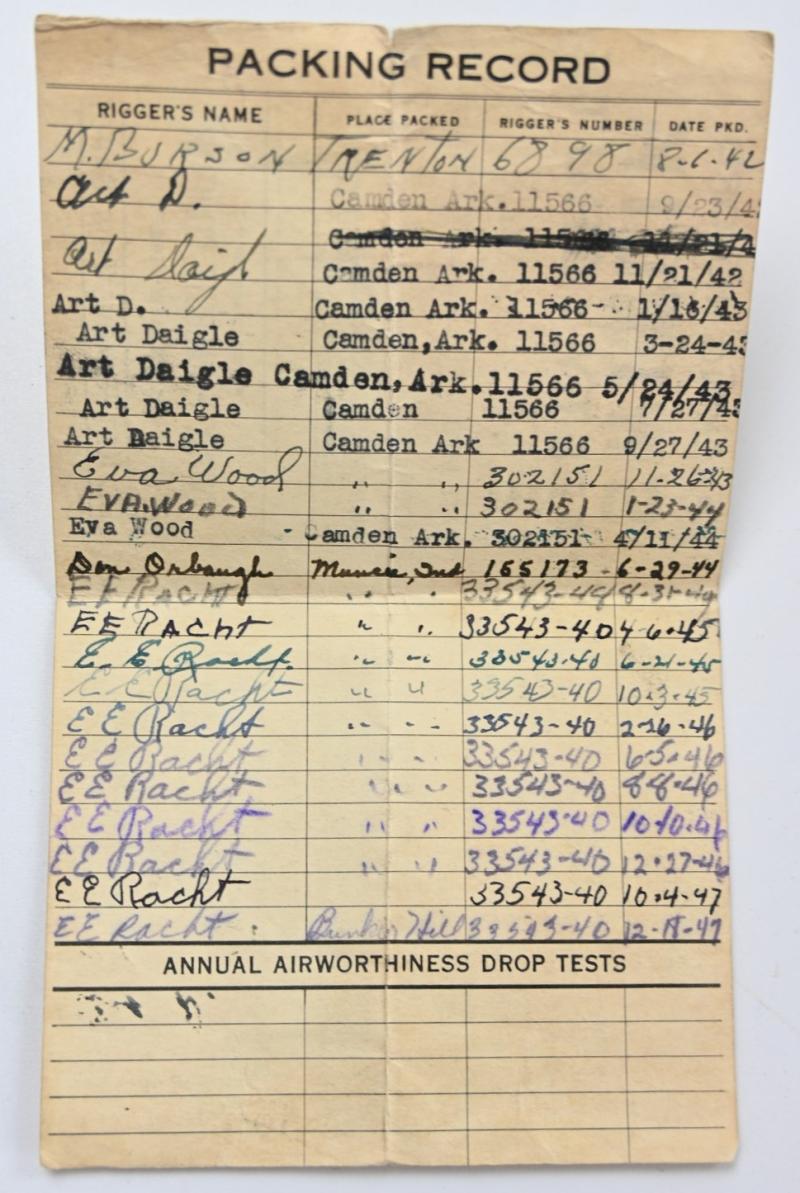 PACKING RECORD
RIGGER'S NAME PLACE PACKED RIGGER'S NUMBER DATE PKD.
M. BURSON TRENTON 6898 8-1-42
Art D. Camden Ark. 11566 9/23/4
Camden Ark. 11566 11/21/4
Art Daigl Camden Ark. 11566 11/21/42
Art D. Camden Ark. 11566 1/16/43
Art Daigle Camden, Ark. 11566 3-24-43
Art Daigle Camden, Ark. 11566 5/24/43
Art Daigle Camden 11566 7/27/43
Art Daigle Camden Ark 11566 9/27/43
Eva Wood " " 302151 11-26-43
EVA WOOD " " 302151 1-23-44
Eva Wood Camden Ark. 302151 4/11/44
Don Orbaugh Muncie, Ind 165173 - 6-29-44
EE RACHT " " 33543-40
EE RACHT " " 33543-40 4-6-45
E. E. Racht. " " 33543-40 6-21-45
EE Racht " " 33543-40 10-3-45
EE Racht " " 33543-40 2-26-46
EE Racht " " 33543-40 6-5-46
EE Racht " " 33543-40 8-8-46
EE Racht " " 33543-40 10-10-46
EE Racht " " 33543-40 12-27-46
EE Racht 33543-40 10-4-47
EE Racht Bunker Hill 33543-40
ANNUAL AIRWORTHINESS DROP TESTS